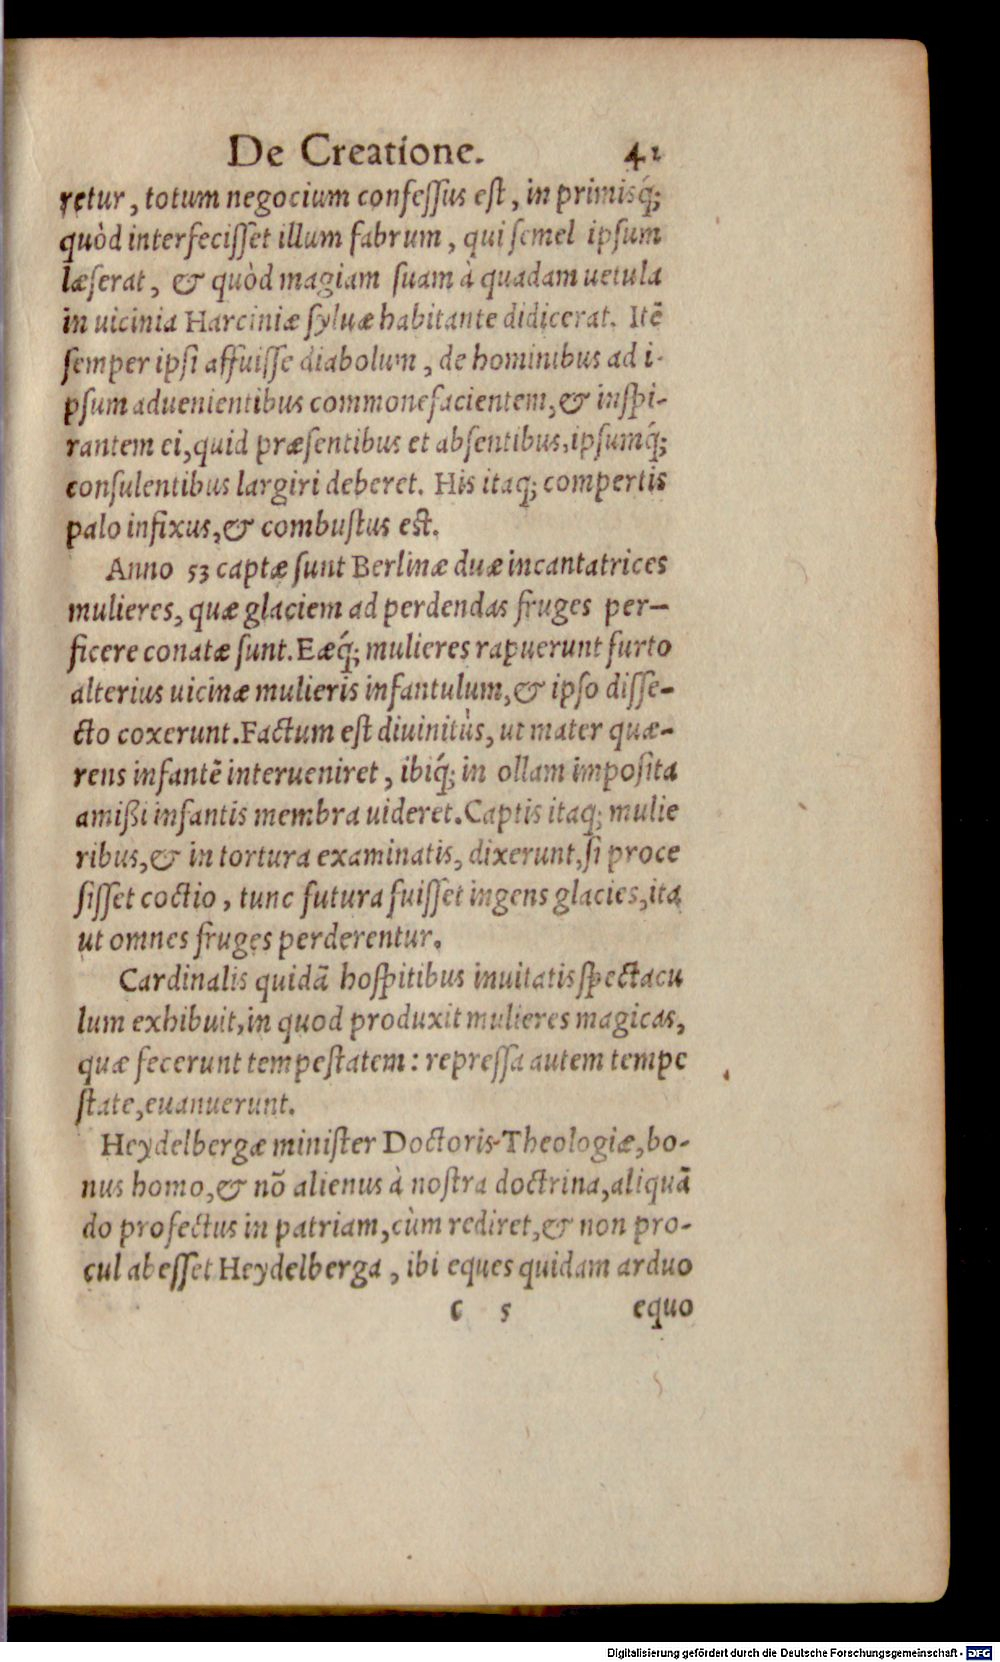 De Creatione. 41
retur, totum negocium confeſſus eſt, in primisq́;
quòd interfeciſſet illum fabrum, qui ſemel ipſum
læſerat, & quòd magiam ſuam à quadam uetula
in uicinia Harciniæ ſyluæ habitante didicerat. Itẽ
ſemper ipſi affuiſſe diabolum, de hominibus ad i-
pſum aduenientibus commonefacientem, & inſpi-
rantem ei, quid præſentibus et abſentibus, ipſumq́;
conſulentibus largiri deberet. His itaq; compertis
palo infixus, & combuſtus eſt.
Anno 53 captæ ſunt Berlinæ duæ incantatrices
mulieres, quæ glaciem ad perdendas fruges per-
ficere conatæ ſunt. Eæq́; mulieres rapuerunt furto
alterius uicinæ mulieris infantulum, & ipſo diſſe-
cto coxerunt. Factum eſt diuinitùs, ut mater quæ-
rens infantẽ interueniret, ibiq́; in ollam impoſita
amißi infantis membra uideret. Captis itaq; mulie
ribus, & in tortura examinatis, dixerunt, ſi proce
ſiſſet coctio, tunc futura fuiſſet ingens glacies, ita
ut omnes fruges perderentur.
Cardinalis quidã hoſpitibus inuitatis ſpectacu
lum exhibuit, in quod produxit mulieres magicas,
quæ fecerunt tempeſtatem: repreſſa autem tempe
ſtate, euanuerunt.
Heydelbergæ miniſter Doctoris Theologiæ, bo-
nus homo, & nõ alienus à noſtra doctrina, aliquã
do profectus in patriam, cùm rediret, & non pro-
cul abeſſet Heydelberga, ibi eques quidam arduo
C 5 equo
Digitalisierung gefördert durch die Deutsche Forschungsgemeinschaft - DFG